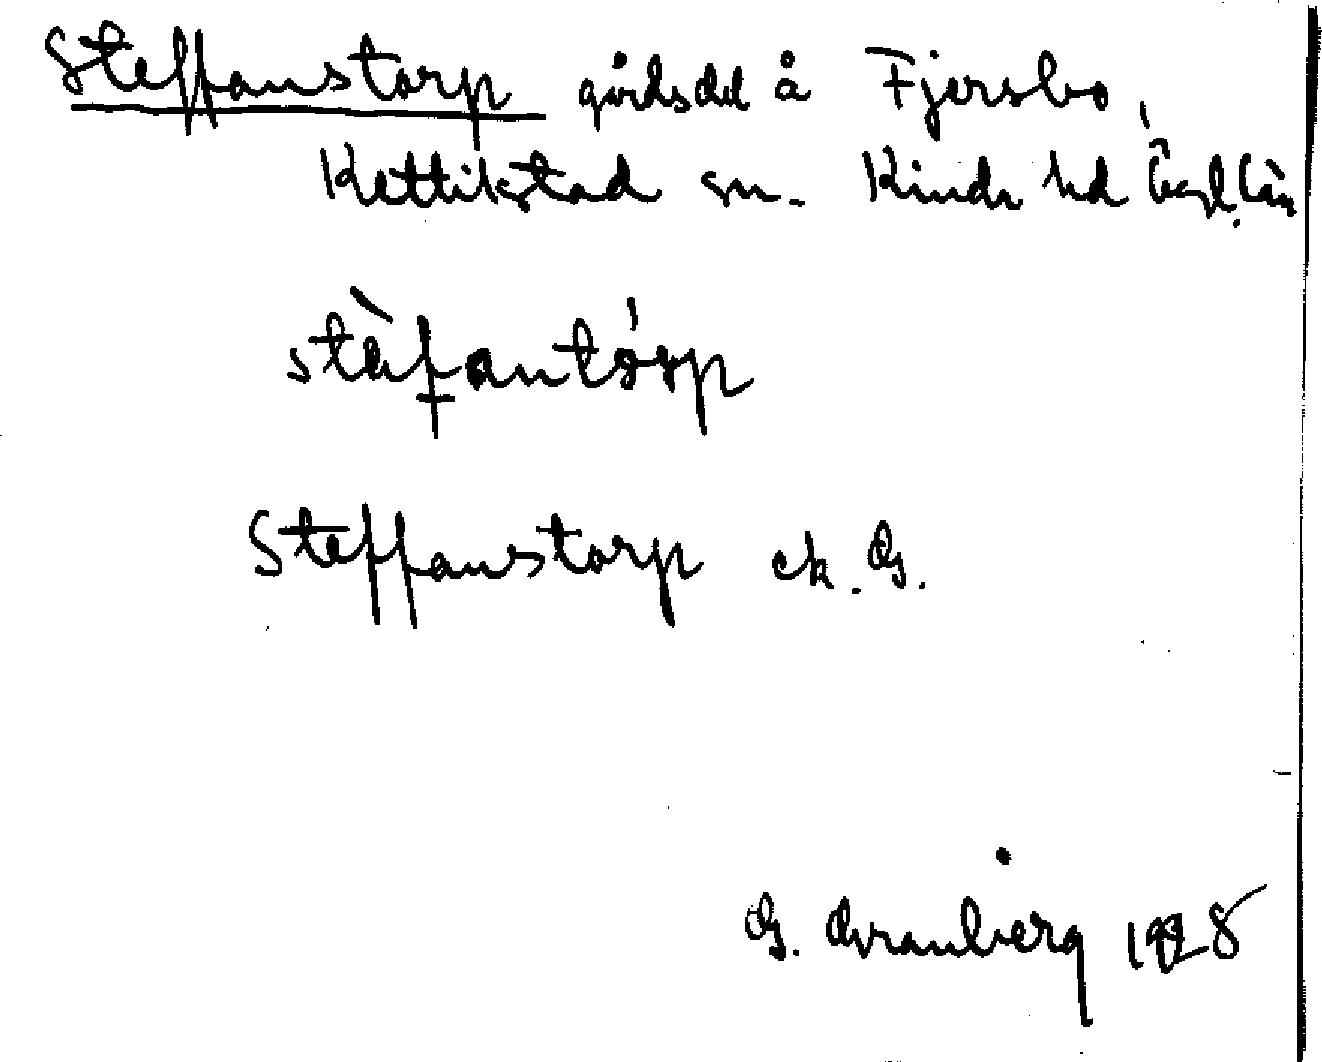 Steffanstorp gårdsdel å Fjersbo,
Kettilstad sn. Kinda hd Ög. län
stàfantórp
Steffanstorp ek. G.
G. Granberg 1928